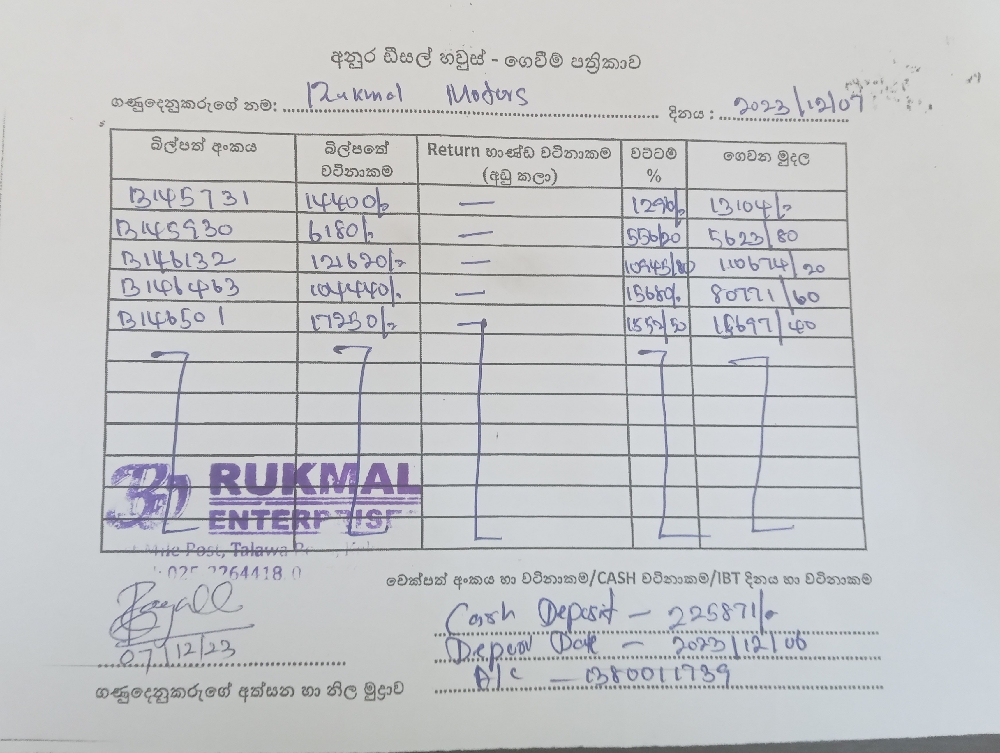 අනුර ඩීසල් හවුස් - ගෙවීම් පත්‍රිකාව
ගණුදෙනුකරුගේ නම: Rukmal Motors දිනය : 2023/12/07
බිල්පත් අංකය බිල්පතේ වටිනාකම Return භාණ්ඩ වටිනාකම (අඩු කලා) වට්ටම % ගෙවන මුදල
B145731 14400/- — 1296/- 13104/-
B145930 6180/- — 556/20 5623/80
B146132 121620/- — 10945/80 110674/20
B146463 104440/- — 15668/- 80771/60
B146501 17250/- 1552/50 15697/40
RUKMAL
ENTERPRISE
Mile Post, Talawa
025 2264418
චෙක්පත් අංකය හා වටිනාකම/CASH වටිනාකම/IBT දිනය හා වටිනාකම
Cash Deposit — 225871/-
Deposit Date — 2023/12/06
A/C — 1380011739
07/12/23
ගණුදෙනුකරුගේ අත්සන හා නිල මුද්‍රාව